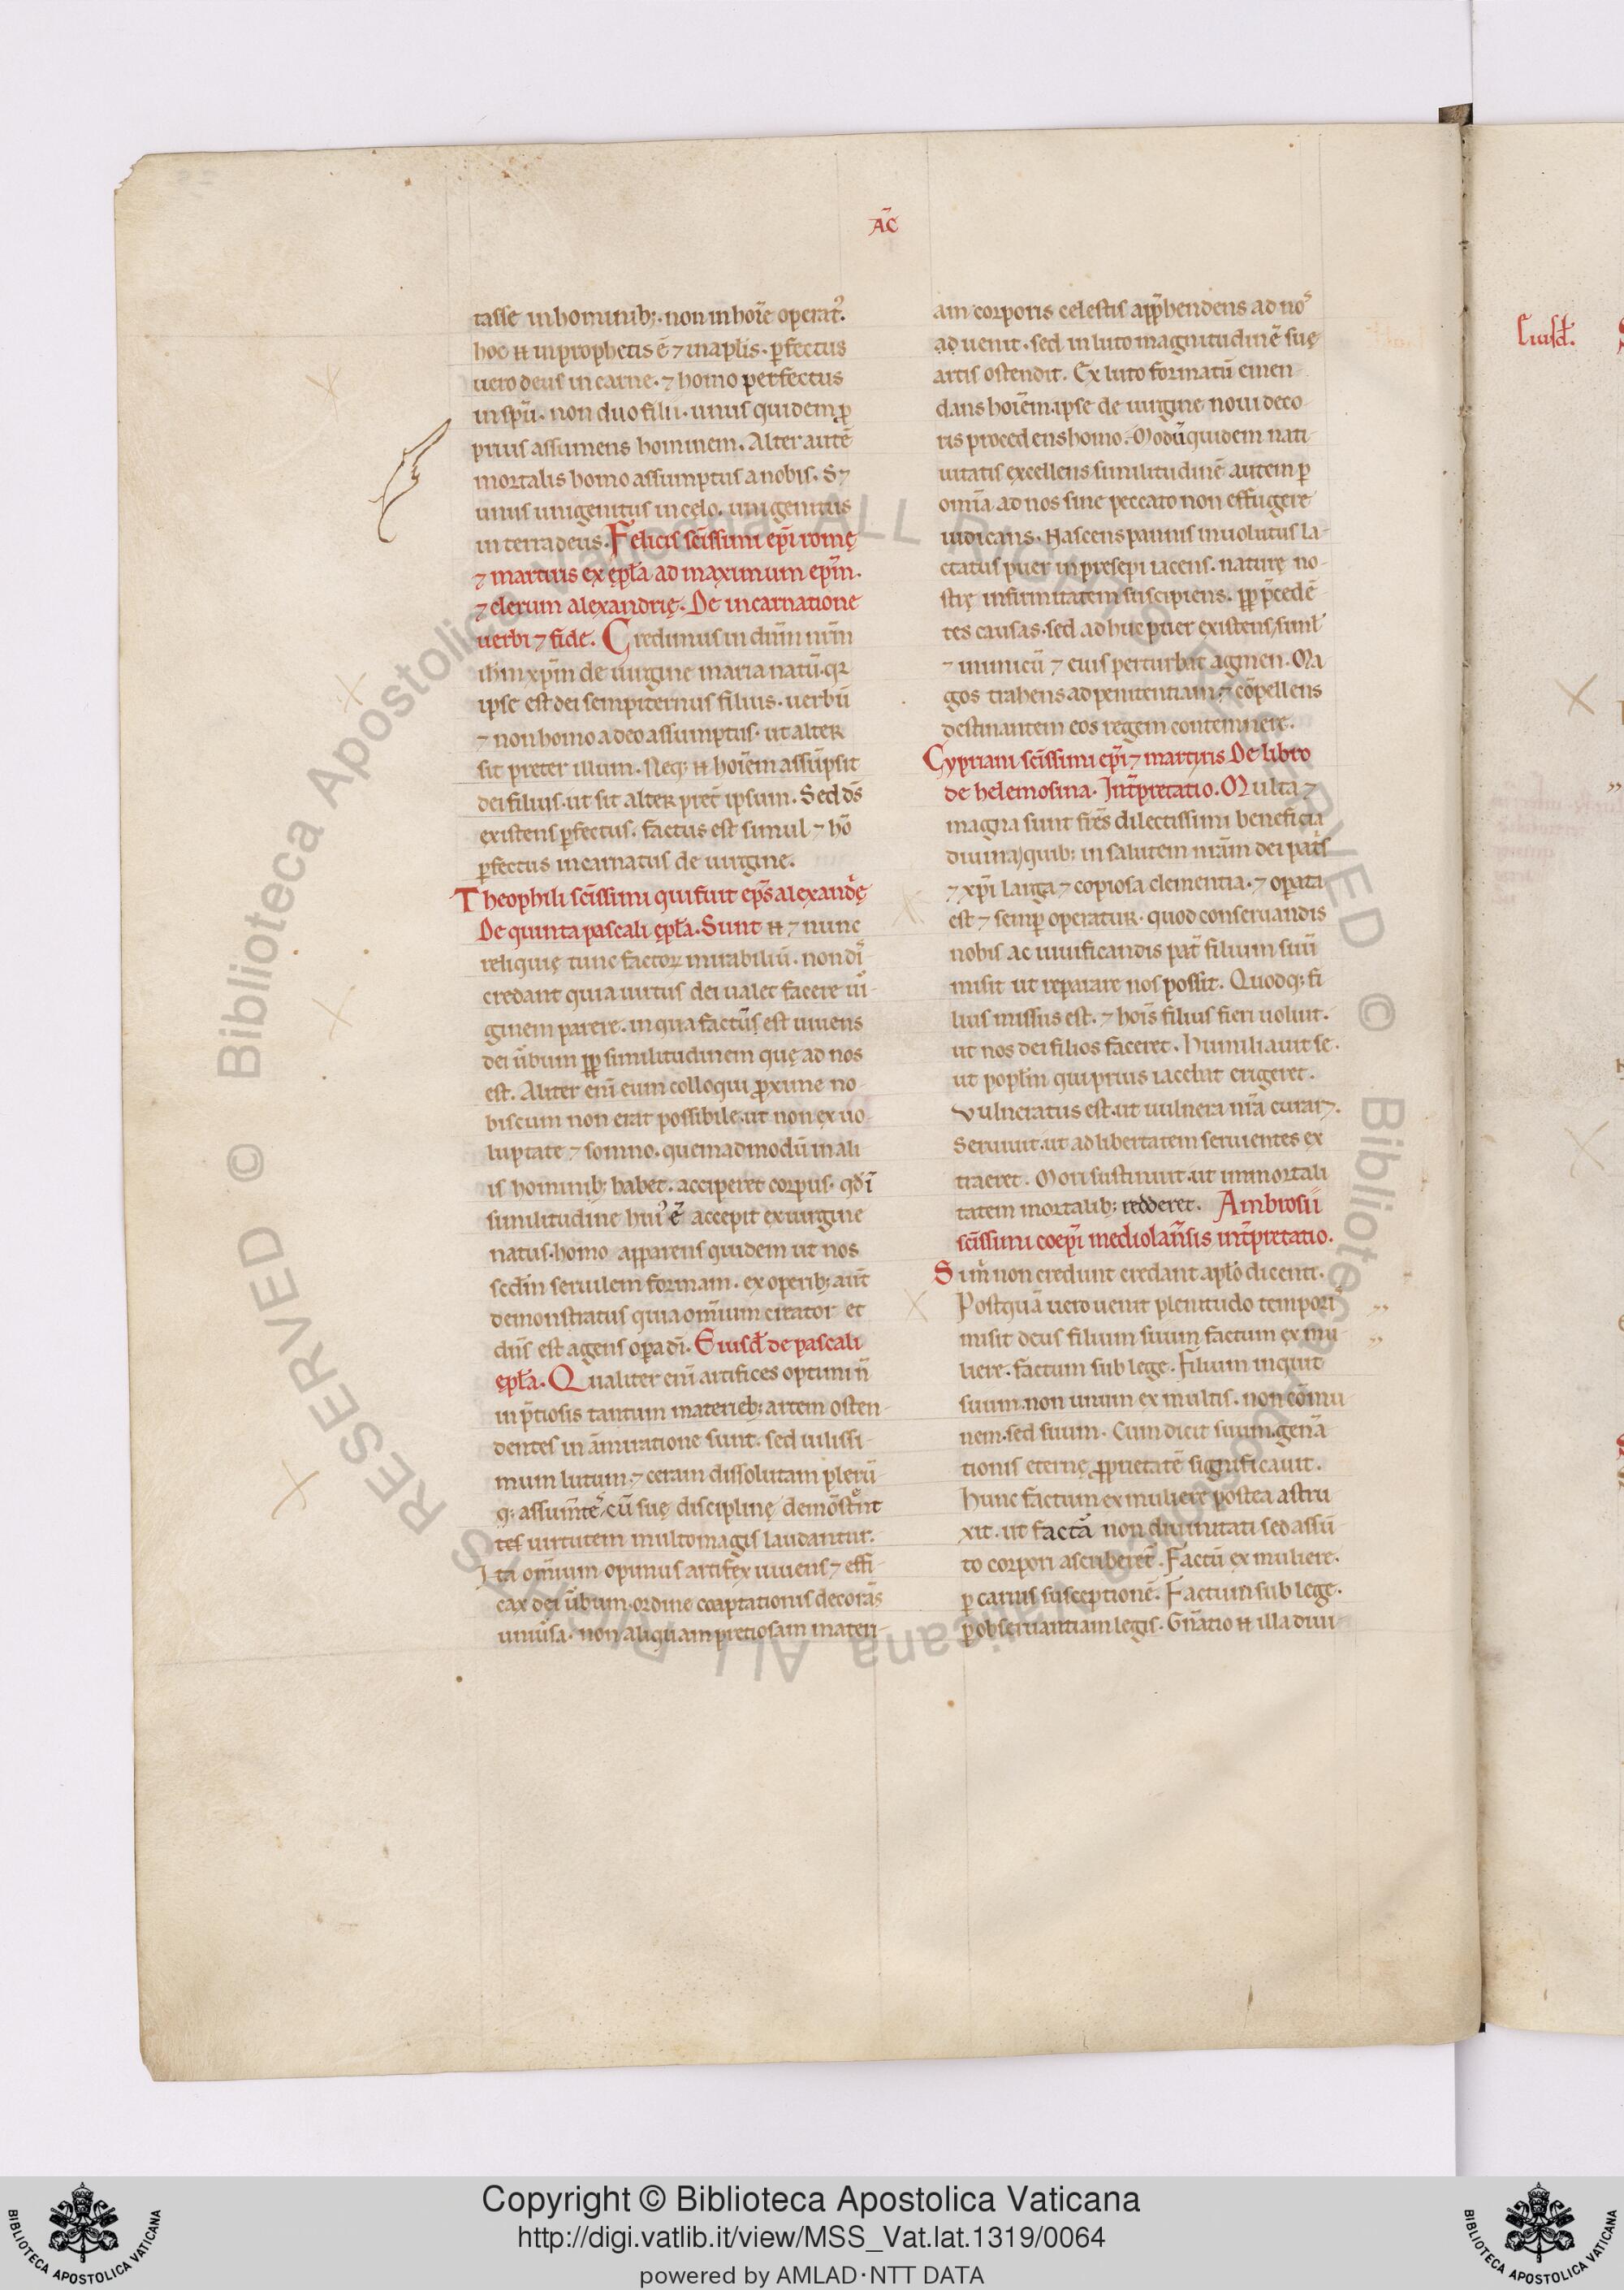 AC̄
tasse in hominib;. non in hoīe operat᷒.
hoc n̄ in prophetis ē ⁊ in apl̄is. ꝑfectus
uero deus in carne. ⁊ homo perfectus
in spū. non duo filii. unus quidem ꝓ
prius assumens hominem. Alter autē
mortalis homo assumptus a nobis. S;
unus unigenitus in cęlo. unigenitus
in terra deus. Felicis sc̄issimi ep̄i romę
⁊ martiris ex ep̄la ad maximum ep̄m.
⁊ clerum alexandrię. De incarnatione
uerbi ⁊ fide. Credimus in dn̄m nr̄m
ih̄m xp̄m de uirgine maria natū. qꝛ
ipse est dei sempiternus filius. uerbū
⁊ non homo a deo assumptus. ut alter
sit preter illum. Neq; n̄ hoīem assūpsit
dei filius. ut sit alter pret̄ ipsum. Sed ds̄
existens ꝑfectus. factus est simul ⁊ hō
ꝑfectus incarnatus de uirgine.
Theophili sc̄issimi qui fuit ep̄s alexandrę
De quinta pascali ep̄la. Sunt n̄ ⁊ nunc
reliquię tunc factoꝝ mirabiliū. non
credant quia uirtus dei ualet facere uir
ginem parere. in qua factus est uiuens
dei ūbum ꝓp̄ similitudinem quę ad nos
est. Aliter eni eum colloqui ꝓxime no
biscum non erat possibile. ut non ex uo
luptate ⁊ somno. quemadmodū in ali
is hominib; habet. acciperet corpus. qd̄ ī
similitudine hui᷒ ē accepit ex uirgine
natus. homo apparens quidem ut nos
sedm̄ seruilem formam. ex operib; aut̄
demonstratus quia omīum creator et
dn̄s est agens oꝑa dī. Eiusd̄ de pascali
ep̄la. Qualiter eni artifices optimi n̄
in p̄tiosis tantum materieb; artem osten-
dentes in āmiratione sunt. sed uilissi-
mum lutum. ⁊ ceram dissolutam plerū
q; assumentes cū suę disciplinę demōstrent
tes uirtutem multomagis laudantur.
Ita omīum optimus artifex uiuens ⁊ effi-
cax dei ūbum. ordine coaptationis decorās
uniūsa. non aliquam pretiosam materi-
am corporis celestis app̄hendens ad nos
aduenit. sed in luto magnitudinē suę
artis ostendit. Ex luto formatū emen
dans hoīem. ipse de uirgine noui deco-
ris procedens homo. Modū quidem nati-
uitatis excellens similitudinē autem ꝑ
omīa ad nos sine peccato non effugere
iudicans. Nascens pannis inuolutus la-
ctatus puer in presepi iacens. naturę no-
strę infirmitatem suscipiens. ꝓp̄ p̄cedē
tes causas. sed adhuc puer existens, simul
⁊ inimicū ⁊ eius perturbat agmen. Ma
gos trahens ad penitentiam, ⁊ cōpellens
destinantem eos regem contemnere.
Cypriani sc̄issimi ep̄i ⁊ martyris De libro
de helemosina. Int̄pretatio. Multa ⁊
magna sunt fr̄es dilectissimi beneficia
diuina, quib; in salutem nr̄am dei patris
⁊ xp̄i larga ⁊ copiosa clementia. ⁊ oꝑata
est ⁊ semꝑ operatur. quod conseruandis
nobis ac uiuificandis pat̄ filium suū
misit ut reparare nos possit. Quodq; fi
lius missus est. ⁊ hoīs filius fieri uoluit.
ut nos dei filios faceret. Humiliauit se.
ut popl̄m qui prius iacebat erigeret.
Vulneratus est. ut uulnera nr̄a curar;.
Seruiuit. ut ad libertatem seruientes ex
traeret. Mori sustinuit. ut immortali
tatem mortalib; redderet. Ambrosii
sc̄issimi coep̄i mediolan̄sis int̄pretatio.
Si m̄ non credunt credant aplō dicenti.
Postquā uero uenit plenitudo temporis
misit deus filium suum factum ex mu
liere. factum sub lege. Filium inquit
suum. non unum ex multis. non cōmu
nem. sed suum. Cum dicit suum. genera
tionis eternę ꝓprietatē significauit.
Hunc factum ex muliere postea astru
xit. ut factā non diuinitati sed assū
to corpori ascriberet̄. Factū ex muliere.
ꝑ carnis susceptionē. Factum sub lege.
ꝑ obseruantiam legis. Gn̄atio n̄ illa diui-
Eiusd̄.
Copyright © Biblioteca Apostolica Vaticana
http://digi.vatlib.it/view/MSS_Vat.lat.1319/0064
powered by AMLAD·NTT DATA
BIBLIOTECA APOSTOLICA VATICANA
BIBLIOTECA APOSTOLICA VATICANA
© Biblioteca Apostolica Vaticana ALL RIGHTS RESERVED © Biblioteca Apostolica Vaticana ALL RIGHTS RESERVED